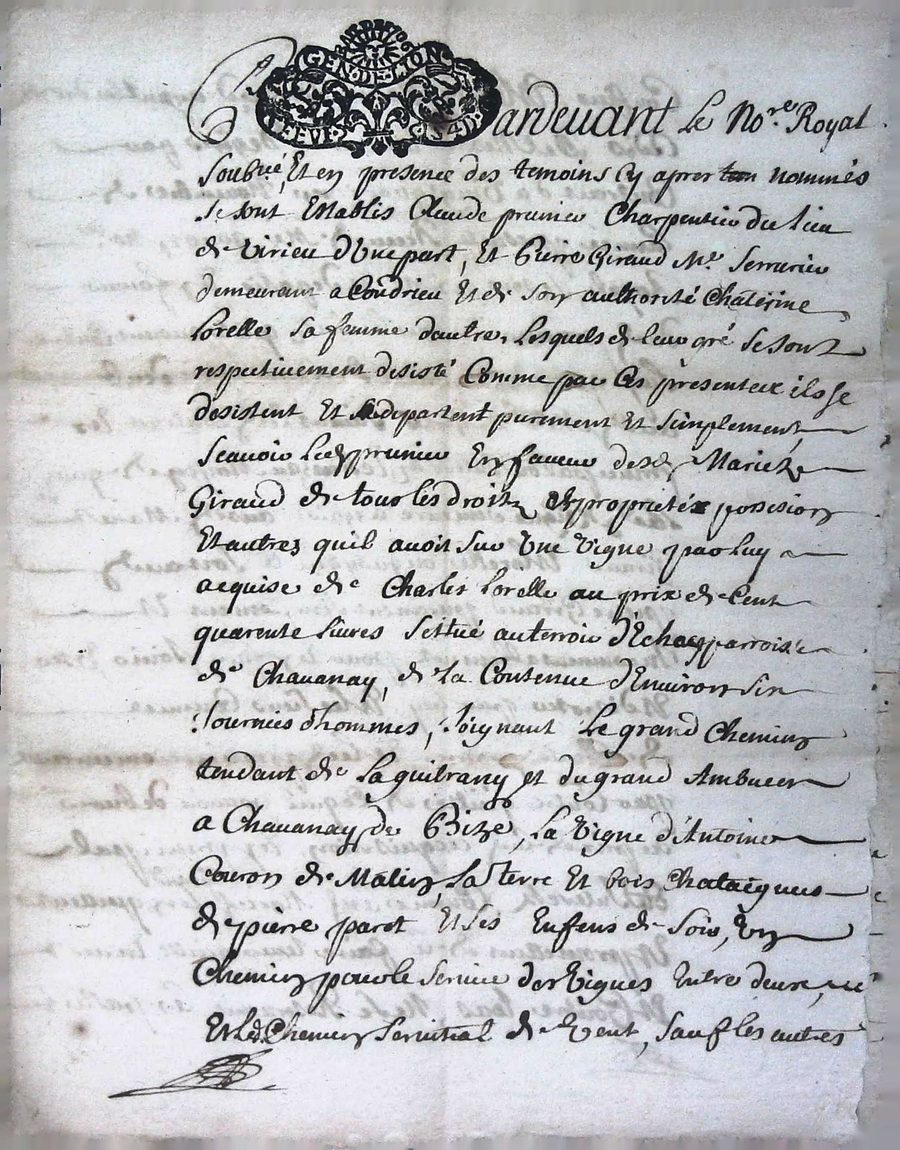 GEN·DE·LION
Pardevant Le No.re Royal
soubné, Et en presence des temoins cy apres nommés
se sont Establis Claude prunier Charpentier du lieu
de Virieu d'Une part, Et Pierre Giraud M.e Serrurier
demeurant a Condrieu Et de son authorité Chaterine
Lorelle sa femme d'autre, Lesquels de leur gré se sont
respectivement desisté Comme par Ces presentes ils se
desistent Et se departent purement Et simplement
scavoir Led prunier En faveur desd Mariez
Giraud de tous les droits et proprietés possesion
Et autres quil avoit sur Une Vigne par Luy
acquise de Charles Lorelle au prix de Cent
quarente Livres scittué au terroir parroisse
de Chavanay, de la Contenue d'Environ six
Journées d'hommes, Joignant Le grand Chemin
tendant de et du grand
a Chavanay de La Vigne d'Antoine
Couron de La terre Et bois Chataignes
de pierre paret Et ses Enfens de soir, Un
Chemin pour le service des Vignes Entre deux,
Et led Chemin de Vent, sauf les autres